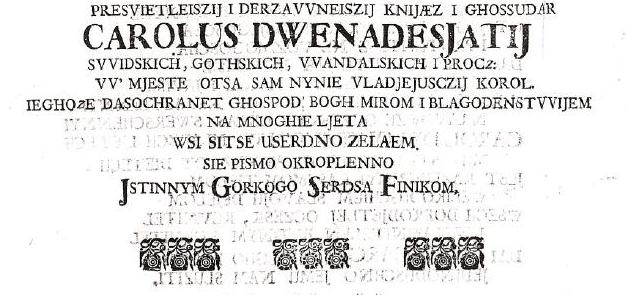 PRESVIETLEISZIJ I DERZAVVNEISZIJ KNIJÆZ I GHOSSUDAR
CAROLUS DWENADESJATIJ
SVVIDSKICH, GOTHSKICH, VVANDALSKICH I PROCZ:
VV' MJESTE OTSA SAM NYNIE VLADJEJUSCZIJ KOROL.
IEGHOZE DASOCHRANET GHOSPOD BOGH MIROM I BLAGODENSTVVIJEM
NA MNOGHIE LJETA
WSI SITSE USERDNO ZELAEM.
SIE PISMO OKROPLENNO
JSTINNYM GORKOGO SERDSA FINIKOM,